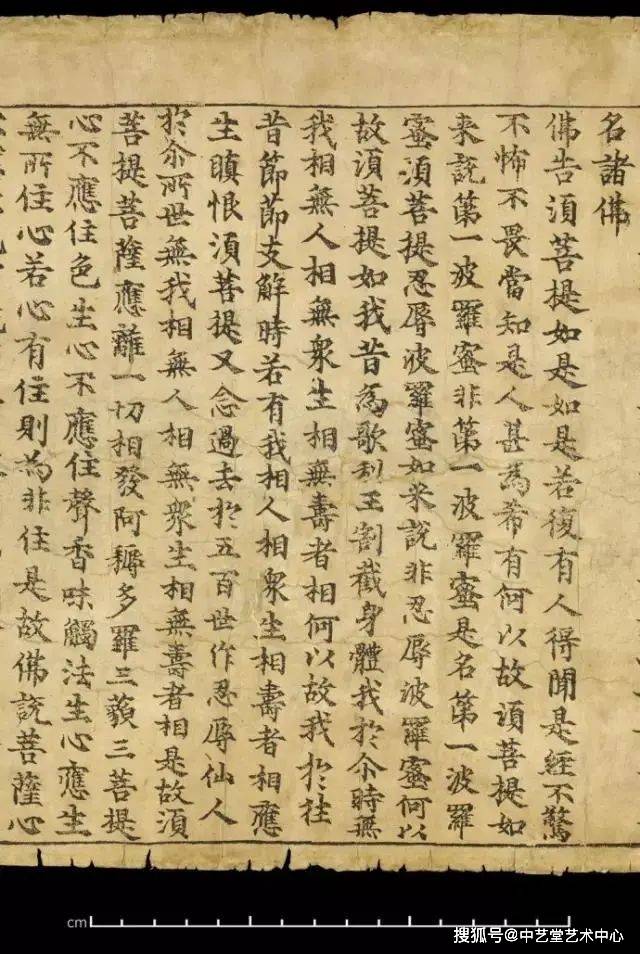 名諸佛
佛告須菩提如是如是若復有人得聞是經不驚
不怖不畏當知是人甚為希有何以故須菩提如
来說第一波羅蜜非第一波羅蜜是名第一波羅
蜜須菩提忍辱波羅蜜如来說非忍辱波羅蜜何以
故須菩提如我昔為歌利王割截身體我於尒時無
我相無人相無衆生相無壽者相何以故我於往
昔節節支解時若有我相人相衆生相壽者相應
生瞋恨須菩提又念過去於五百世作忍辱仙人
於尒所世無我相無人相無衆生相無壽者相是故須
菩提菩薩應離一切相發阿耨多羅三藐三菩提
心不應住色生心不應住聲香味觸法生心應生
無所住心若心有住則為非住是故佛說菩薩心
cm
搜狐号@中艺堂艺术中心